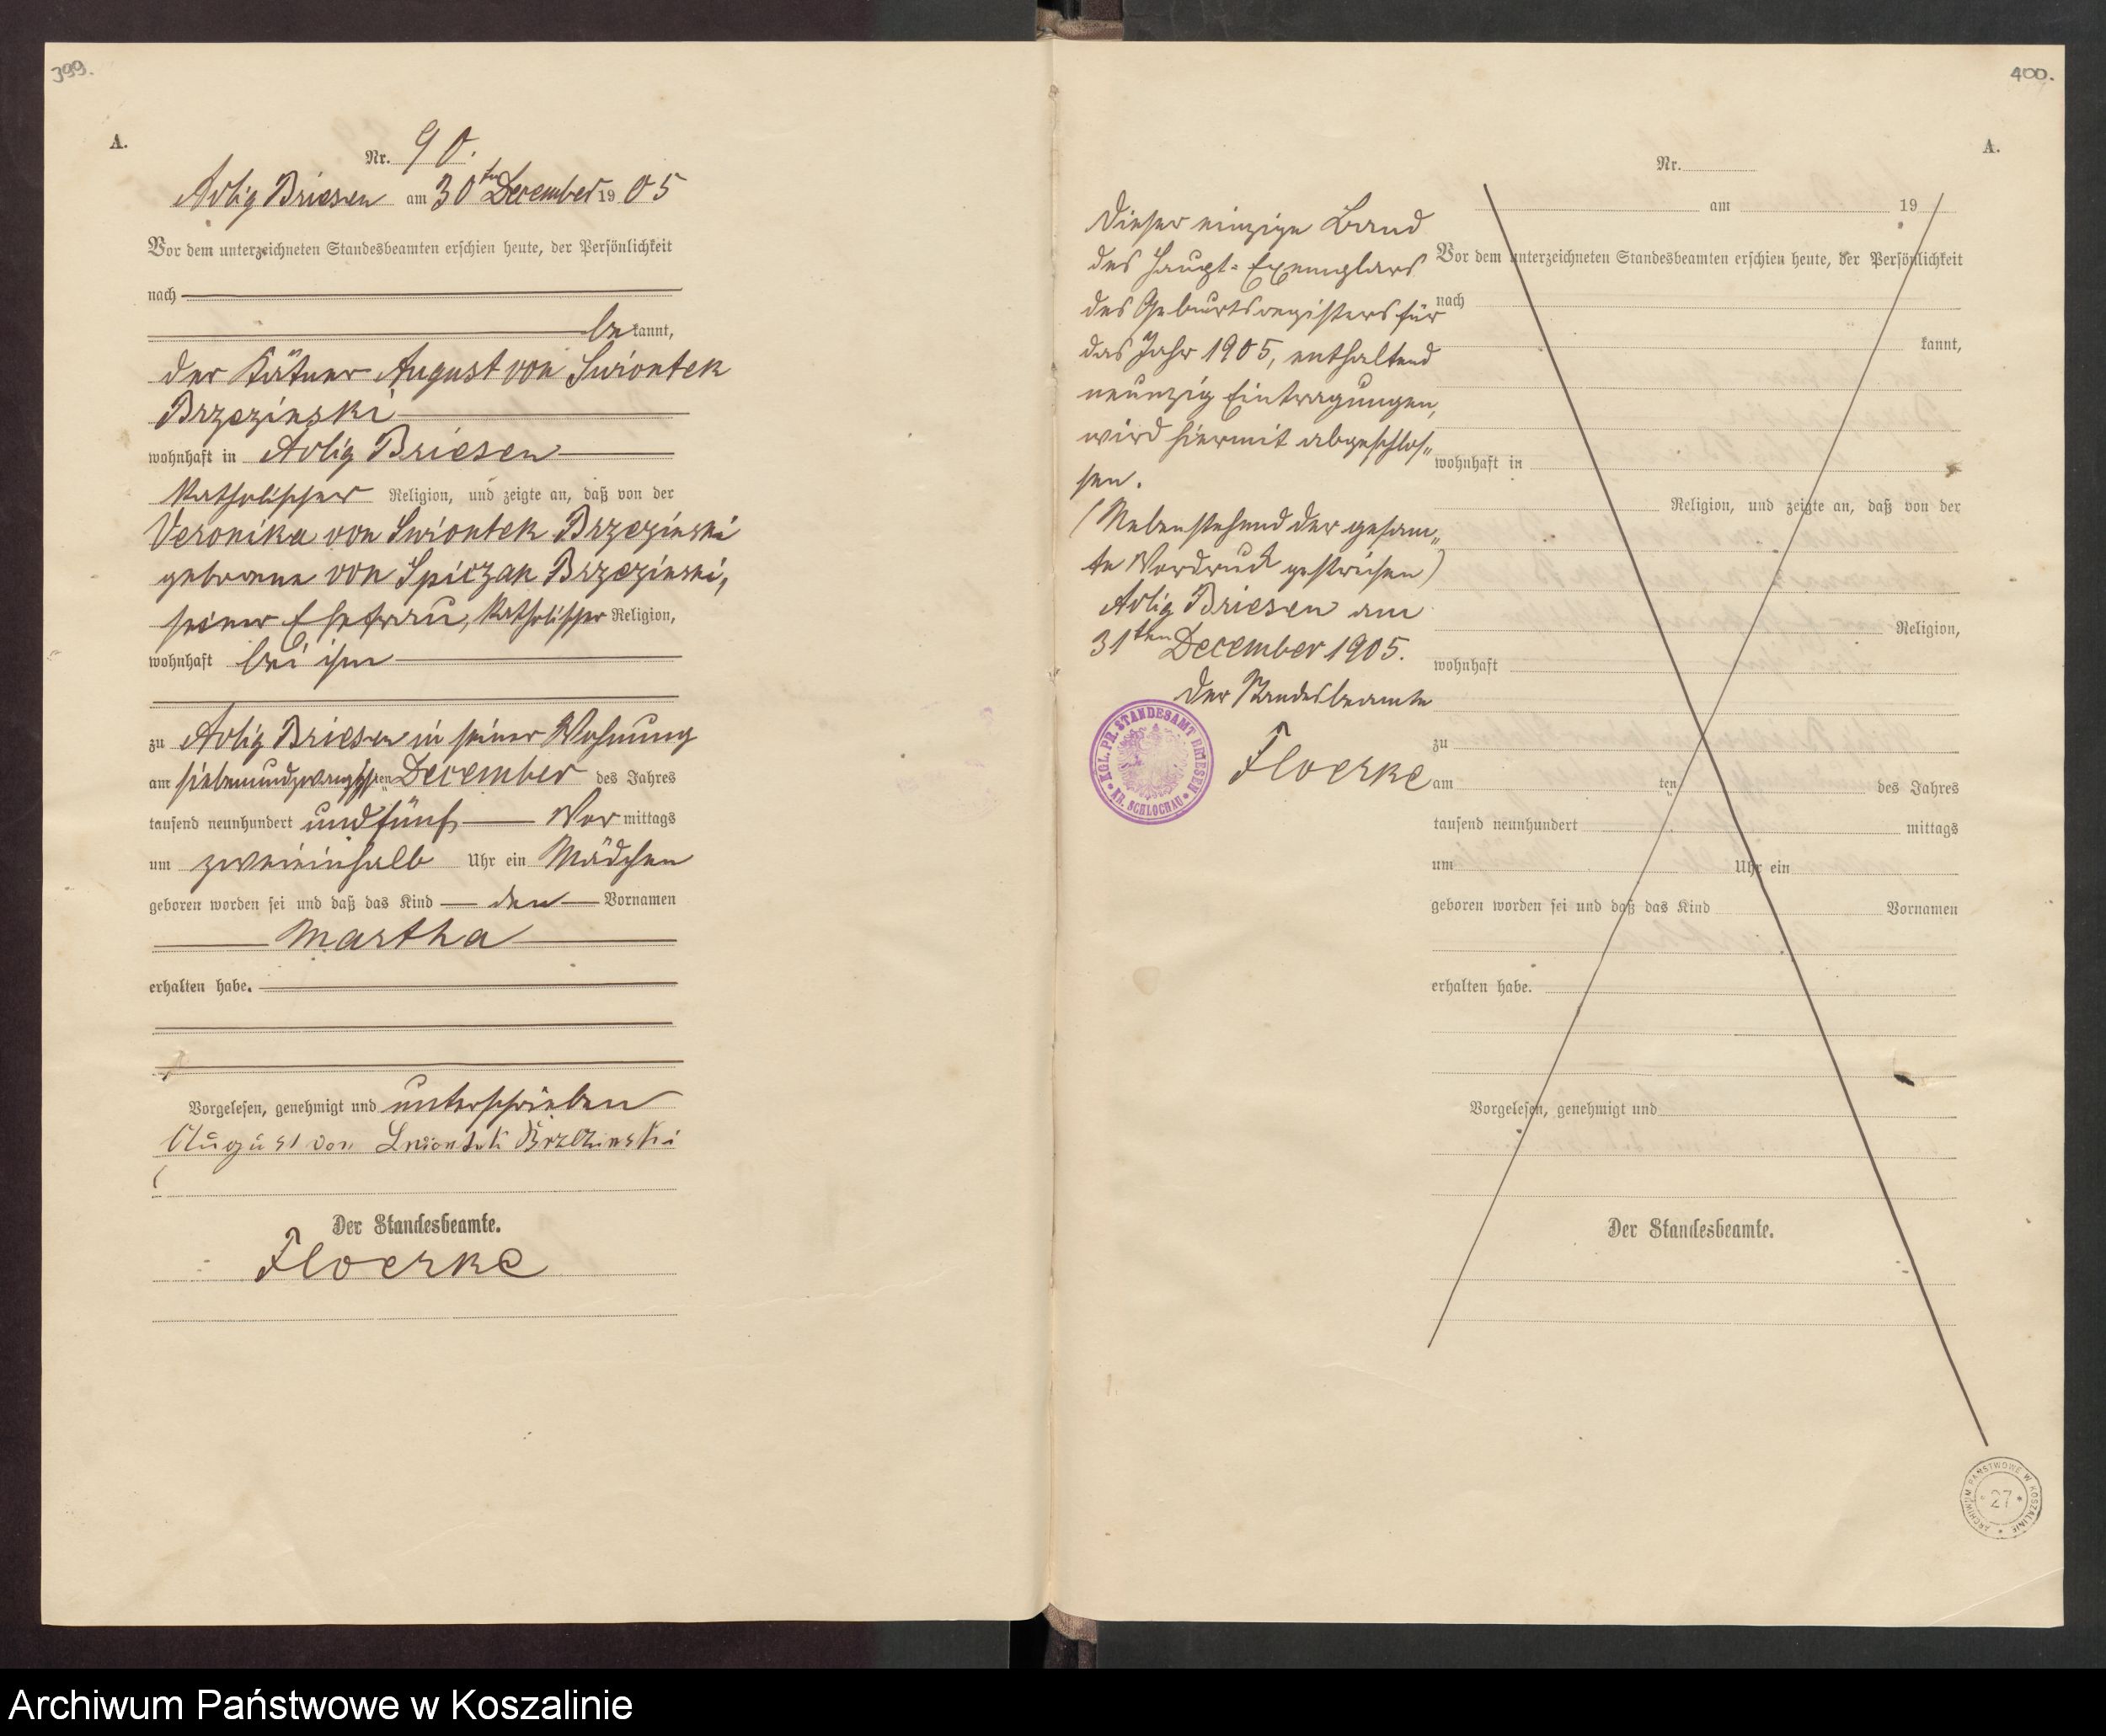 399.
A.
Nr. 90.
Adlig Briesen am 30ten December 1905
Vor dem unterzeichneten Standesbeamten erschien heute, der Persönlichkeit
nach
be kannt,
der Kätner August von Swiontek
Brzezinski
wohnhaft in Adlig Briesen
katholischer Religion, und zeigte an, daß von der
Veronika von Swiontek Brzezinski
geborene von Spiczak Brzezinski,
seiner Ehefrau, katholischer Religion,
wohnhaft bei ihm
zu Adlig Briesen in seiner Wohnung
am siebenundzwanzigsten December des Jahres
tausend neunhundert und fünf Vor mittags
um zweieinhalb Uhr ein Mädchen
geboren worden sei und daß das Kind den Vornamen
Martha
erhalten habe.
Vorgelesen, genehmigt und unterschrieben
August von Swiontek Brzezinski
Der Standesbeamte.
Floerke
400.
A.
Dieser einzige Band
des Haupt-Exemplars
des Geburtsregisters für
das Jahr 1905, enthaltend
neunzig Eintragungen,
wird hiermit abgeschlos-
sen.
(Nebenstehend der gesam-
te Vordruck gestrichen)
Adlig Briesen am
31ten December 1905.
Der Standesbeamte
Floerke
KGL. PR. STANDESAMT BRIESEN
KR. SCHLOCHAU
Nr.
am 19
Vor dem unterzeichneten Standesbeamten erschien heute, der Persönlichkeit
nach
kannt,
wohnhaft in
Religion, und zeigte an, daß von der
Religion,
wohnhaft
zu
am ten des Jahres
tausend neunhundert mittags
um Uhr ein
geboren worden sei und daß das Kind Vornamen
erhalten habe.
Vorgelesen, genehmigt und
Der Standesbeamte.
ARCHIWUM PAŃSTWOWE W KOSZALINIE
* 27 *
Archiwum Państwowe w Koszalinie